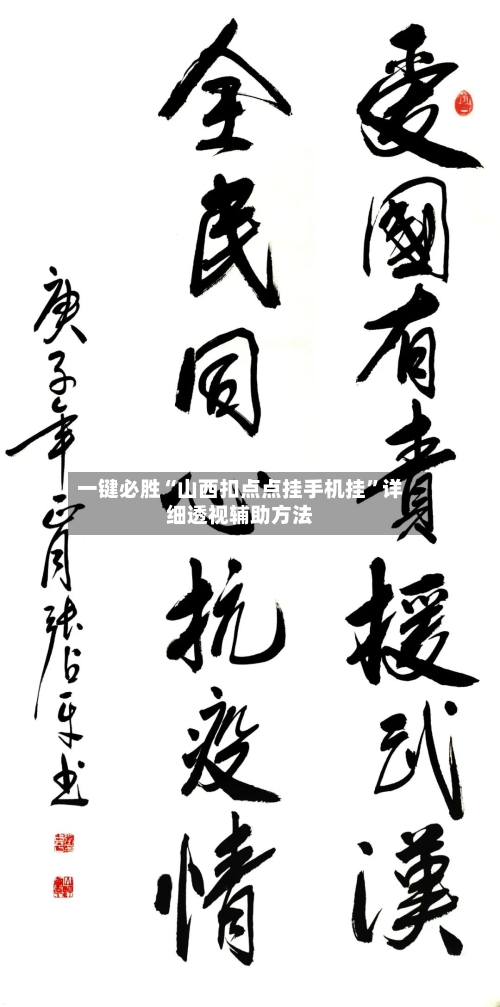 愛國有責援武漢
全民同心抗疫情
庚子年正月張占平书
一键必胜“山西扣点点挂手机挂”详
细透视辅助方法